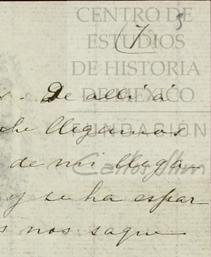 CENTRO DE
ESTUDIOS
DE HISTORIA
DE MÉXICO
FUNDACIÓN
Carlos Slim
(7)
De allí á
che llegamos
de mi llega
y se ha espar
nos saque